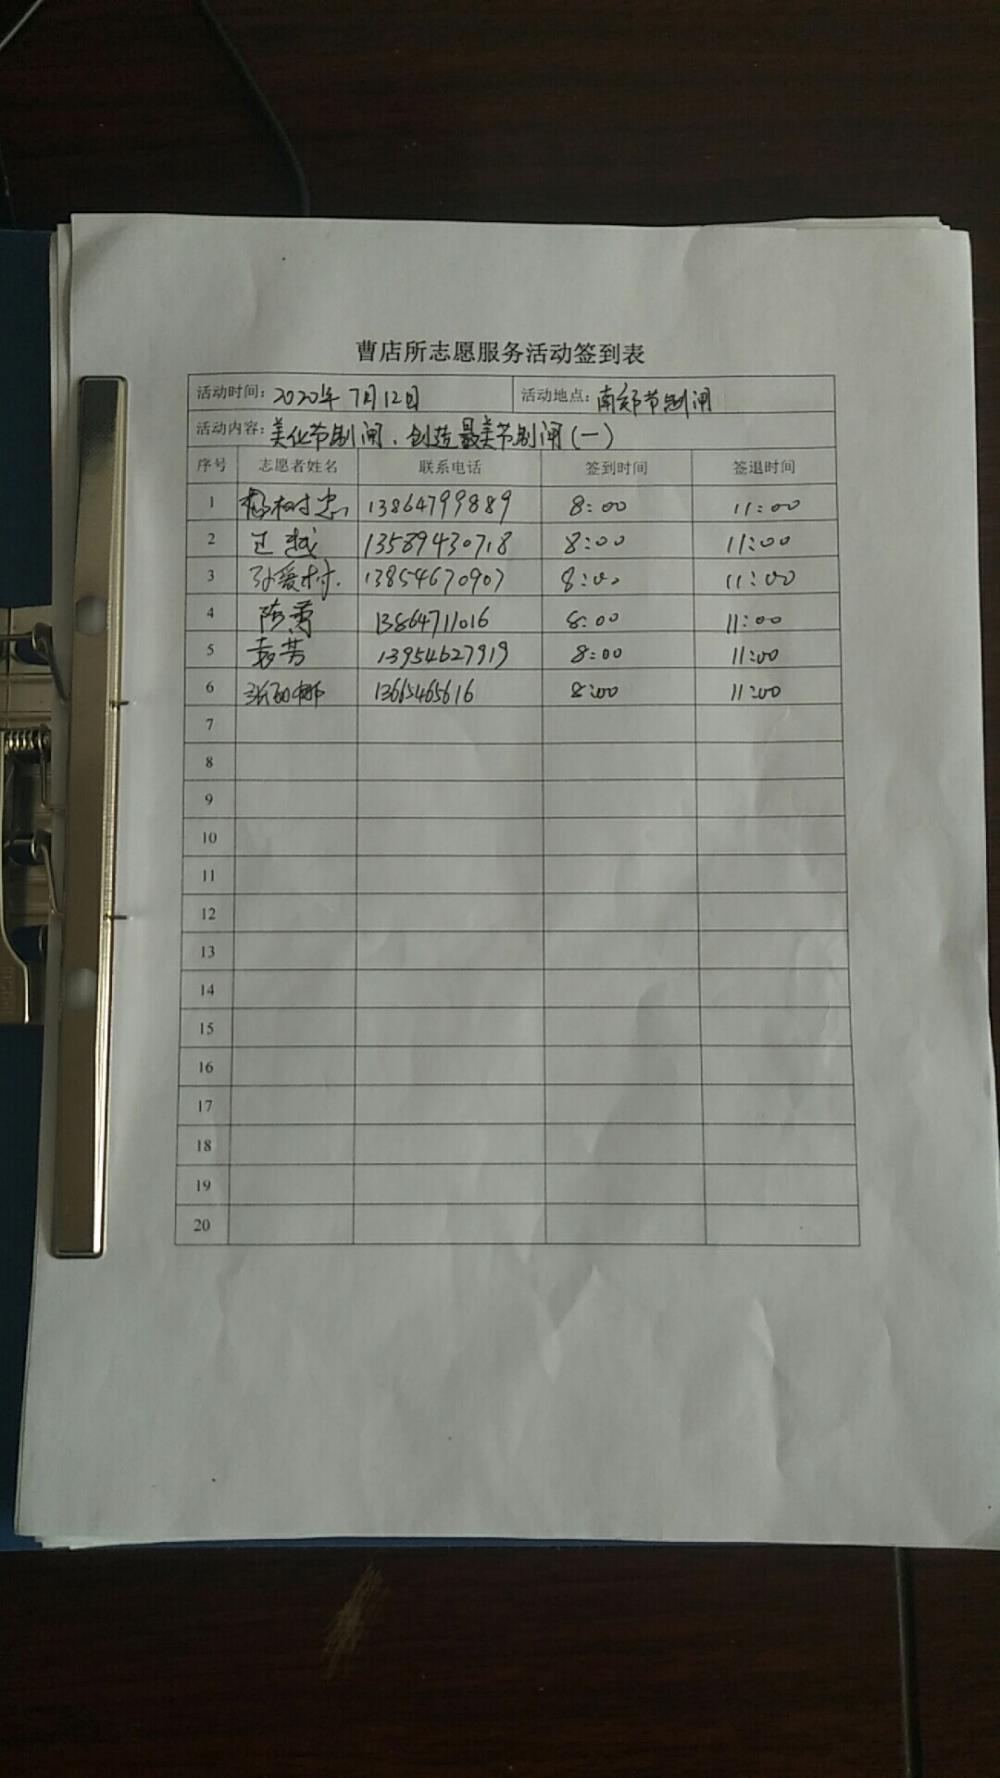 曹店所志愿服务活动签到表
活动时间: 2020年7月12日 活动地点: 南郊节制闸
活动内容: 美化节制闸、创造最美节制闸(一)
序号 志愿者姓名 联系电话 签到时间 签退时间
1 杨树忠 13864799889 8:00 11:00
2 王越 13589430718 8:00 11:00
3 孙爱村 13854670907 8:00 11:00
4 陈蕾 13864711016 8:00 11:00
5 袁芳 13954627919 8:00 11:00
6 1365465616 8:00 11:00
7
8
9
10
11
12
13
14
15
16
17
18
19
20